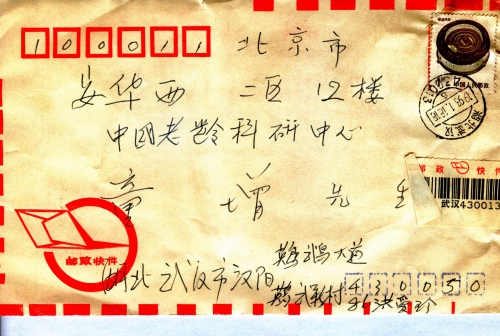 100011
北京市
中国人民邮政
安华西二区12楼
湖北武汉
中国老龄科研中心
邮政快件
武汉430013
童增先生
邮政快件
鹦鹉大道
湖北武汉市汉阳
430050
鹦武村
洪